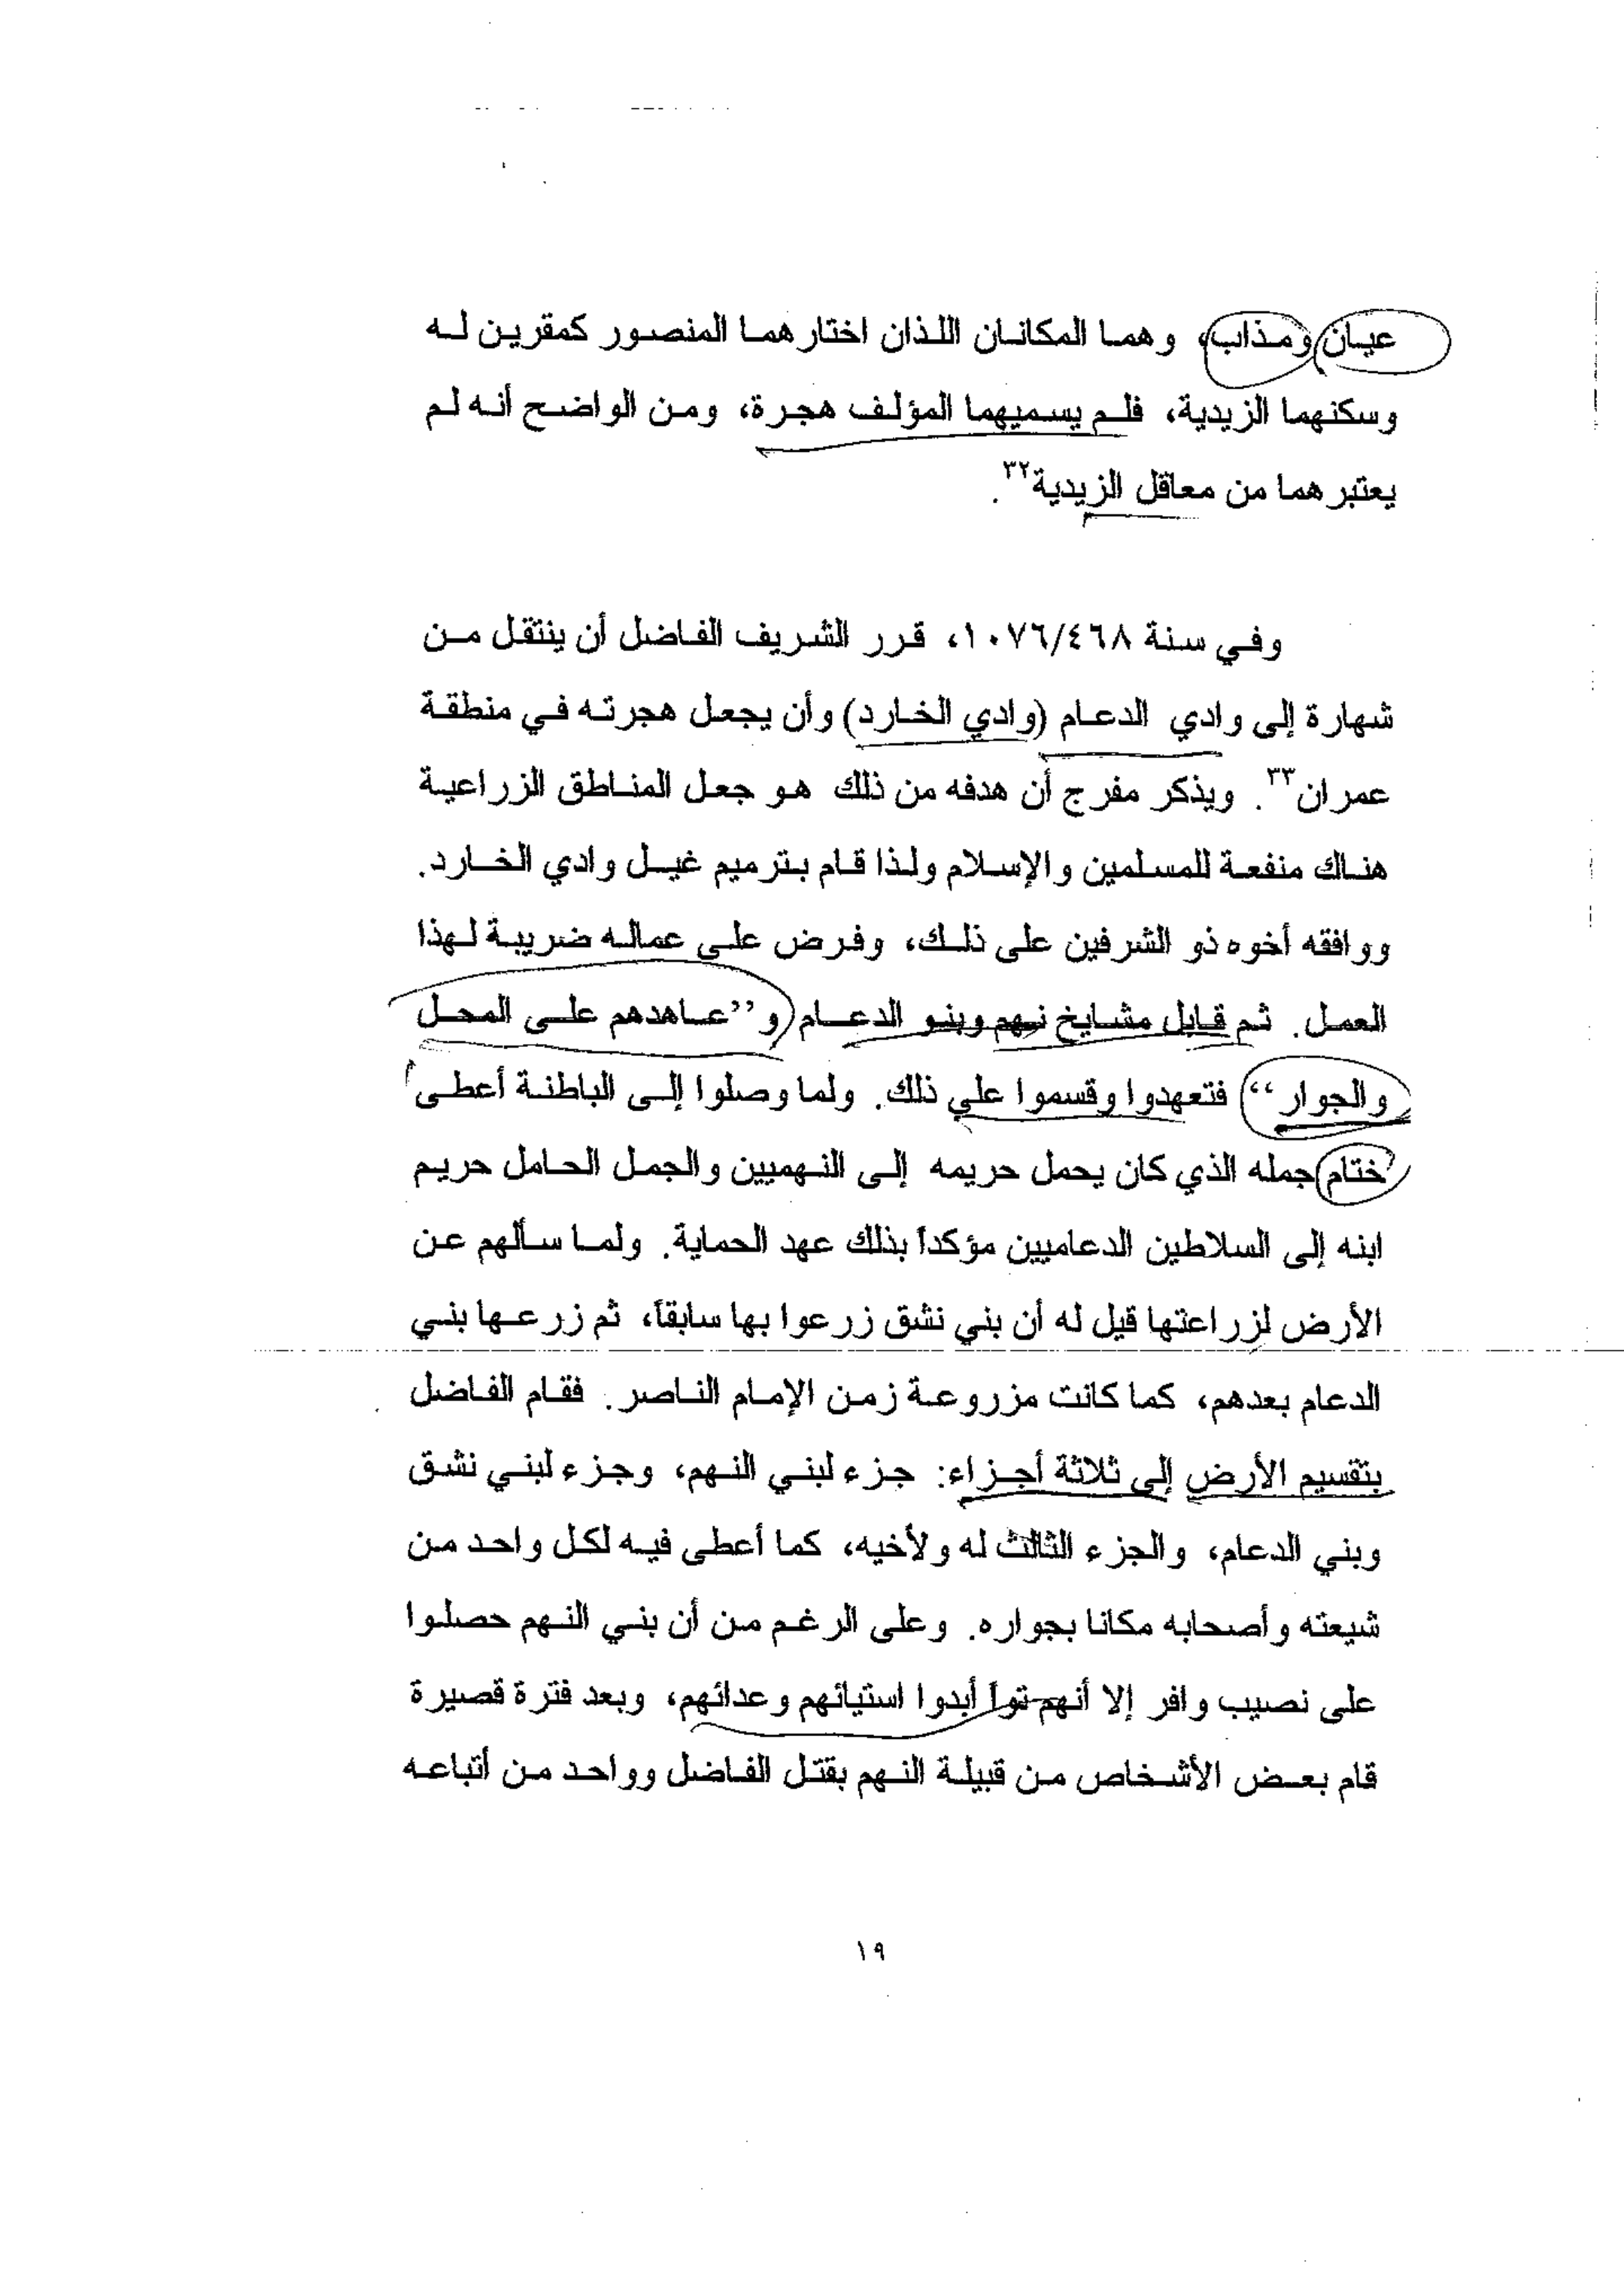 عيان ومذاب، وهما المكانان اللذان اختارهما المنصور كمقرين له
وسكنهما الزيدية، فلم يسميهما المؤلف هجرة، ومن الواضح أنه لم
يعتبرهما من معاقل الزيدية٣٢.
وفي سنة ١٠٧٦/٤٦٨، قرر الشريف الفاضل أن ينتقل من
شهارة إلى وادي الدعام (وادي الخارد) وأن يجعل هجرته في منطقة
عمران٣٣. ويذكر مفرج أن هدفه من ذلك هو جعل المناطق الزراعية
هناك منفعة للمسلمين والإسلام ولذا قام بترميم غيل وادي الخارد.
ووافقه أخوه ذو الشرفين على ذلك، وفرض على عماله ضريبة لهذا
العمل. ثم قابل مشايخ نهم وبنو الدعام و”عاهدهم على المحل
والجوار“ فتعهدوا وقسموا علي ذلك. ولما وصلوا إلى الباطنة أعطى
ختام جمله الذي كان يحمل حريمه إلى النهميين والجمل الحامل حريم
ابنه إلى السلاطين الدعاميين مؤكداً بذلك عهد الحماية. ولما سألهم عن
الأرض لزراعتها قيل له أن بني نشق زرعوا بها سابقاً، ثم زرعها بني
الدعام بعدهم، كما كانت مزروعة زمن الإمام الناصر. فقام الفاضل
بتقسيم الأرض إلى ثلاثة أجزاء: جزء لبني النهم، وجزء لبني نشق
وبني الدعام، والجزء الثالث له ولأخيه، كما أعطى فيه لكل واحد من
شيعته وأصحابه مكانا بجواره. وعلى الرغم من أن بني النهم حصلوا
على نصيب وافر إلا أنهم تواً أبدوا استيائهم وعدائهم، وبعد فترة قصيرة
قام بعض الأشخاص من قبيلة النهم بقتل الفاضل وواحد من أتباعه
١٩